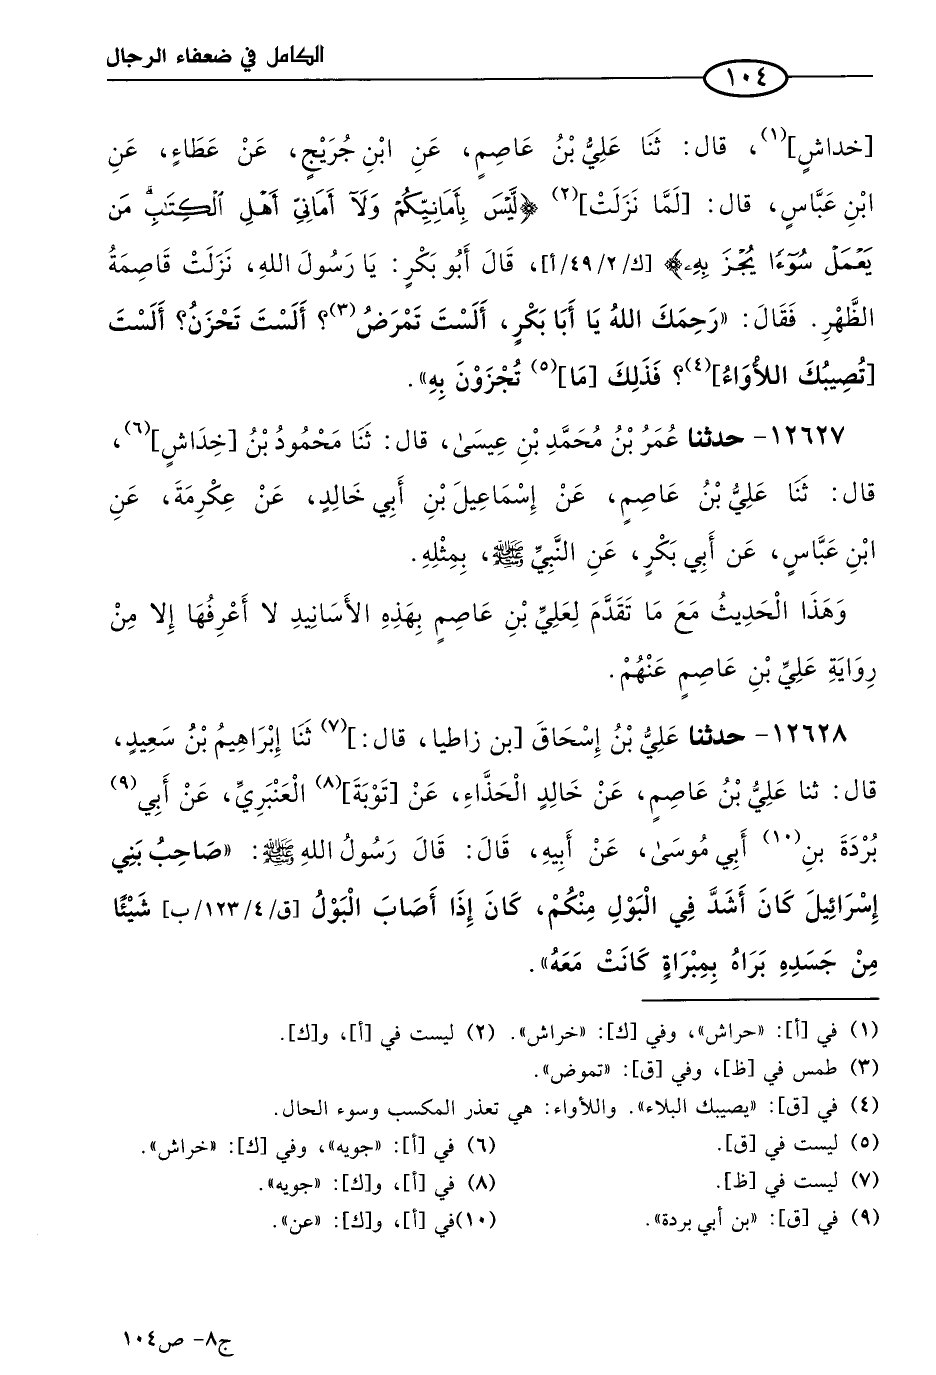 الكامل في ضعفاء الرجال
١٠٤
[خداشٍ](١)، قال: ثَنَا عَلِيُّ بْنُ عَاصِمٍ، عَنِ ابْنِ جُرَيْجٍ، عَنْ عَطَاءٍ، عَنِ
ابْنِ عَبَّاسٍ، قال: [لَمَّا نَزَلَتْ](٢) ﴿لَّيْسَ بِأَمَانِيِّكُمْ وَلَآ أَمَانِيِّ أَهْلِ ٱلْكِتَٰبِۗ مَن
يَعْمَلْ سُوٓءًا يُجْزَ بِهِۦ﴾ [ك/٤٩/٢/أ]، قَالَ أَبُو بَكْرٍ: يَا رَسُولَ اللهِ، نَزَلَتْ قَاصِمَةُ
الظَّهْرِ. فَقَالَ: «رَحِمَكَ اللهُ يَا أَبَا بَكْرٍ، أَلَسْتَ تَمْرَضُ(٣)؟ أَلَسْتَ تَحْزَنُ؟ أَلَسْتَ
[تُصِيبُكَ اللأْوَاءُ](٤)؟ فَذَلِكَ [مَا](٥) تُجْزَوْنَ بِهِ».
١٢٦٢٧- حدثنا عُمَرُ بْنُ مُحَمَّدِ بْنِ عِيسَىٰ، قال: ثَنَا مَحْمُودُ بْنُ [خِدَاشٍ](٦)،
قال: ثَنَا عَلِيُّ بْنُ عَاصِمٍ، عَنْ إِسْمَاعِيلَ بْنِ أَبِي خَالِدٍ، عَنْ عِكْرِمَةَ، عَنِ
ابْنِ عَبَّاسٍ، عَن أَبِي بَكْرٍ، عَنِ النَّبِيِّ ﷺ، بِمِثْلِهِ.
وَهَذَا الْحَدِيثُ مَعَ مَا تَقَدَّمَ لِعَلِيِّ بْنِ عَاصِمٍ بِهَذِهِ الأَسَانِيدِ لا أَعْرِفُهَا إِلا مِنْ
رِوَايَةِ عَلِيِّ بْنِ عَاصِمٍ عَنْهُمْ.
١٢٦٢٨- حدثنا عَلِيُّ بْنُ إِسْحَاقَ [بن زاطيا، قال:](٧) ثَنَا إِبْرَاهِيمُ بْنُ سَعِيدٍ،
قال: ثنا عَلِيُّ بْنُ عَاصِمٍ، عَنْ خَالِدٍ الْحَذَّاءِ، عَنْ [تَوْبَةَ](٨) الْعَنْبَرِيِّ، عَنْ أَبِي(٩)
بُرْدَةَ بنِ(١٠) أَبِي مُوسَىٰ، عَنْ أَبِيهِ، قَالَ: قَالَ رَسُولُ اللهِ ﷺ: «صَاحِبُ بَنِي
إِسْرَائِيلَ كَانَ أَشَدَّ فِي الْبَوْلِ مِنْكُمْ، كَانَ إِذَا أَصَابَ الْبَوْلُ [ق/٤/١٢٣/ب] شَيْئًا
مِنْ جَسَدِهِ بَرَاهُ بِمِبْرَاةٍ كَانَتْ مَعَهُ».
(١) في [أ]: «حراش»، وفي [ك]: «خراش». (٢) ليست في [أ]، و[ك].
(٣) طمس في [ظ]، وفي [ق]: «تموض».
(٤) في [ق]: «يصيبك البلاء». واللأواء: هي تعذر المكسب وسوء الحال.
(٥) ليست في [ق]. (٦) في [أ]: «جويه»، وفي [ك]: «خراش».
(٧) ليست في [ظ]. (٨) في [أ]، و[ك]: «جويه».
(٩) في [ق]: «بن أبي بردة». (١٠)في [أ]، و[ك]: «عن».
ج٨- ص١٠٤